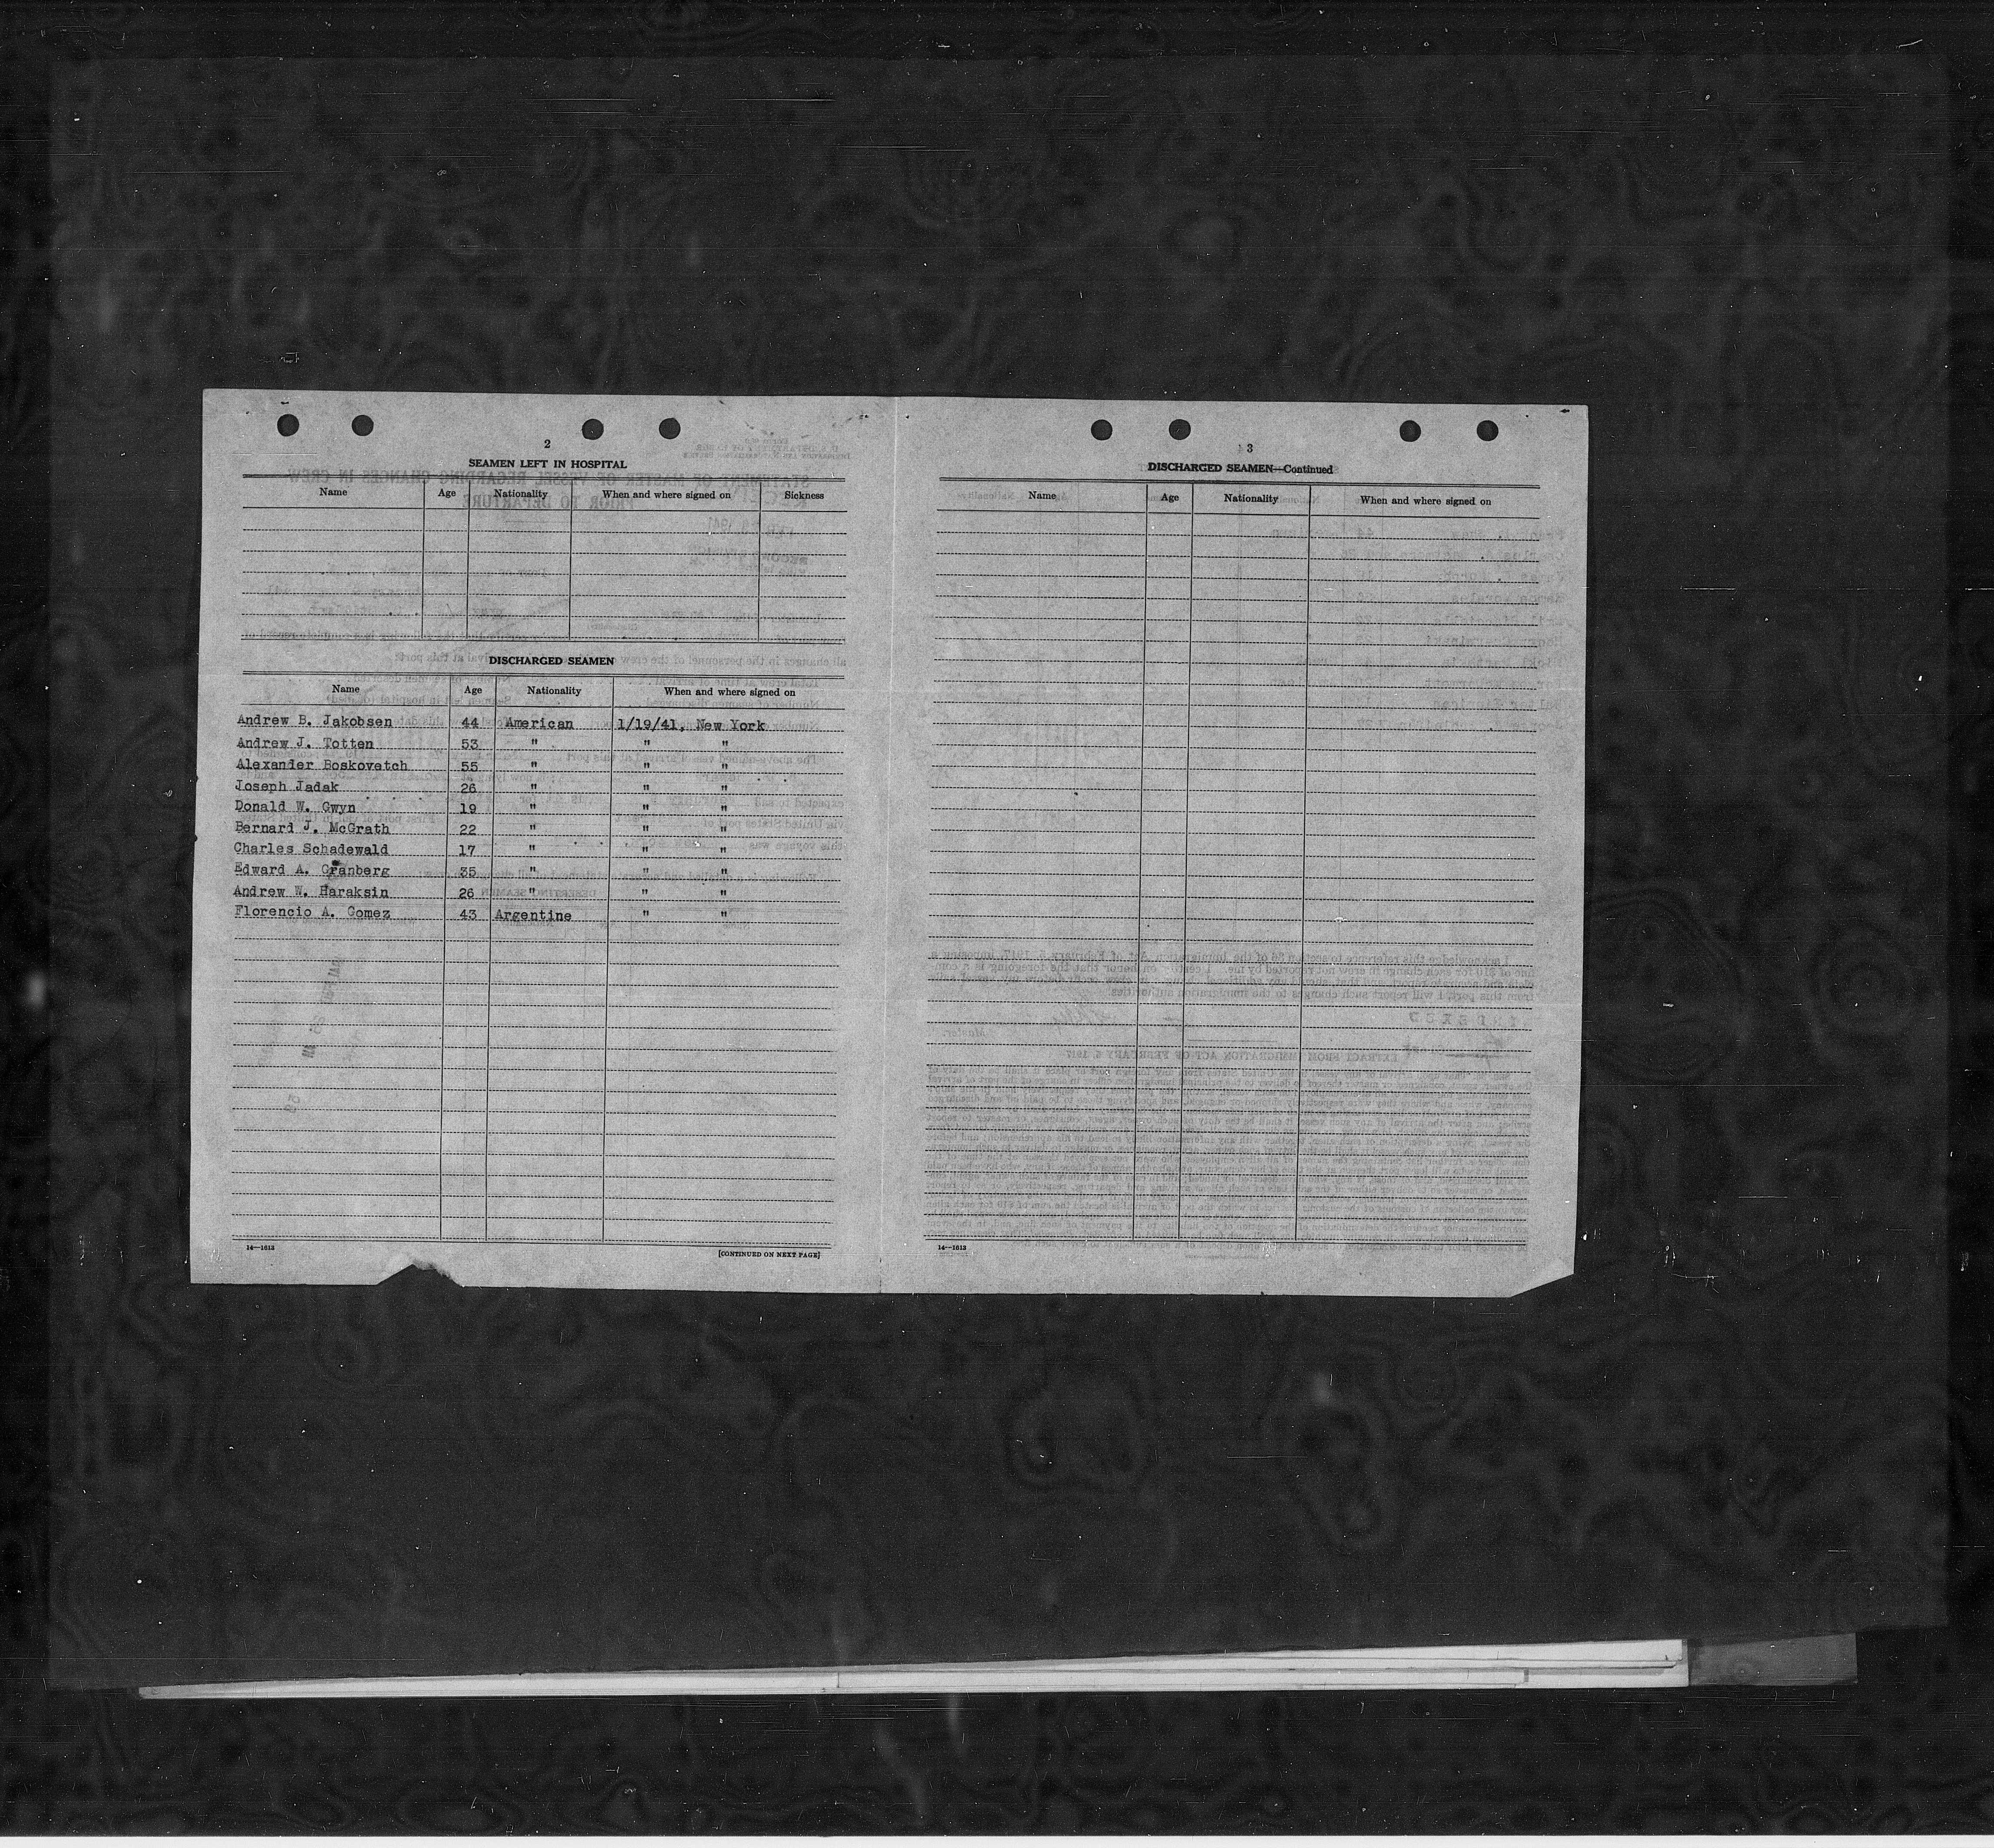 2
SEAMEN LEFT IN HOSPITAL
Name Age Nationality When and where signed on Sickness
DISCHARGED SEAMEN
Name Age Nationality When and where signed on
Andrew B. Jakobsen 44 American 1/19/41, New York
Andrew J. Totten 53 " " "
Alexander Boskovetch 55 " " "
Joseph Jadak 26 " " "
Donald W. Gwyn 19 " " "
Bernard J. McGrath 22 " " "
Charles Schadewald 17 " " "
Edward A. Granberg 35 " " "
Andrew W. Haraksin 26 " " "
Florencio A. Gomez 43 Argentine " "
14—1613
[CONTINUED ON NEXT PAGE]
3
DISCHARGED SEAMEN—Continued
Name Age Nationality When and where signed on
14—1613